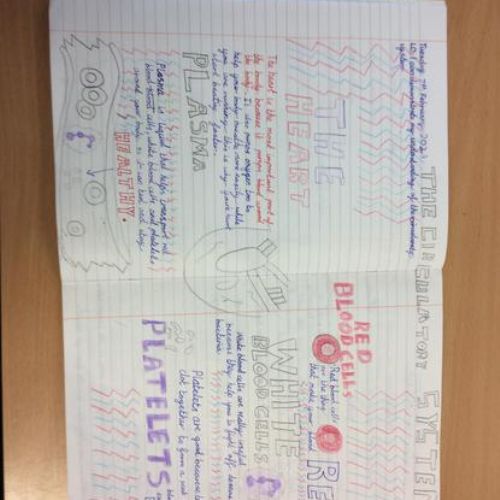 Tuesday 7th February, 2023.
LO: I can demonstrate my understanding of the circulatory
system
THE CIRCULATORY SYSTE
THE
HEART
The heart is the most important part of
the body because it pumps blood around
the body. It also pumps oxygen too to
help your body muscles more easily while
you are running. This is why you're
heart beating faster.
PLASMA
Plasma is liquid that helps transport red
blood cells, white blood cells and platelets
around your body so it can heal and stay
HEALTHY.
RED
BLOOD CELLS
Red blood cells
are the
that make your blood
RE
WHITE
BLOOD CELLS
White blood cells are really useful
because they help you to fight off
bacteria.
PLATELETS
Platelets are good because
clot together to form a